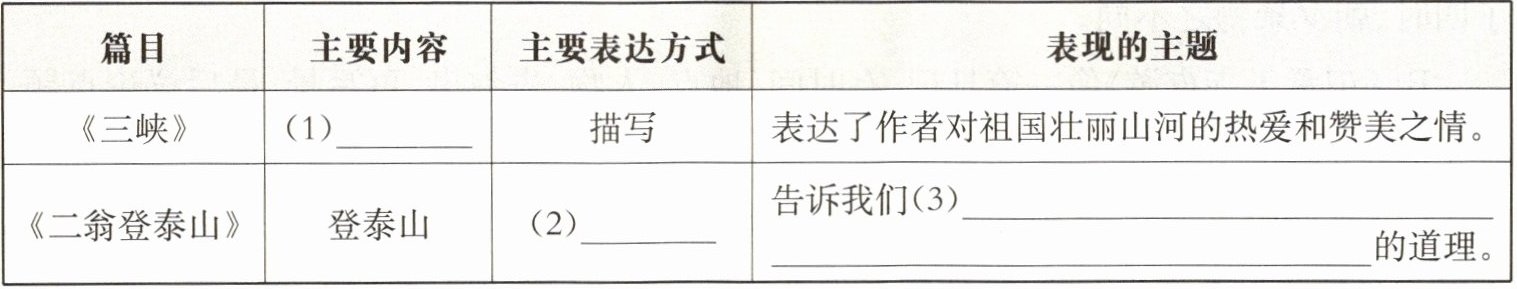 篇目 主要内容 主要表达方式 表现的主题
《三峡》 (1)________ 描写 表达了作者对祖国壮丽山河的热爱和赞美之情。
《二翁登泰山》 登泰山 (2)________ 告诉我们(3)________________
________________的道理。